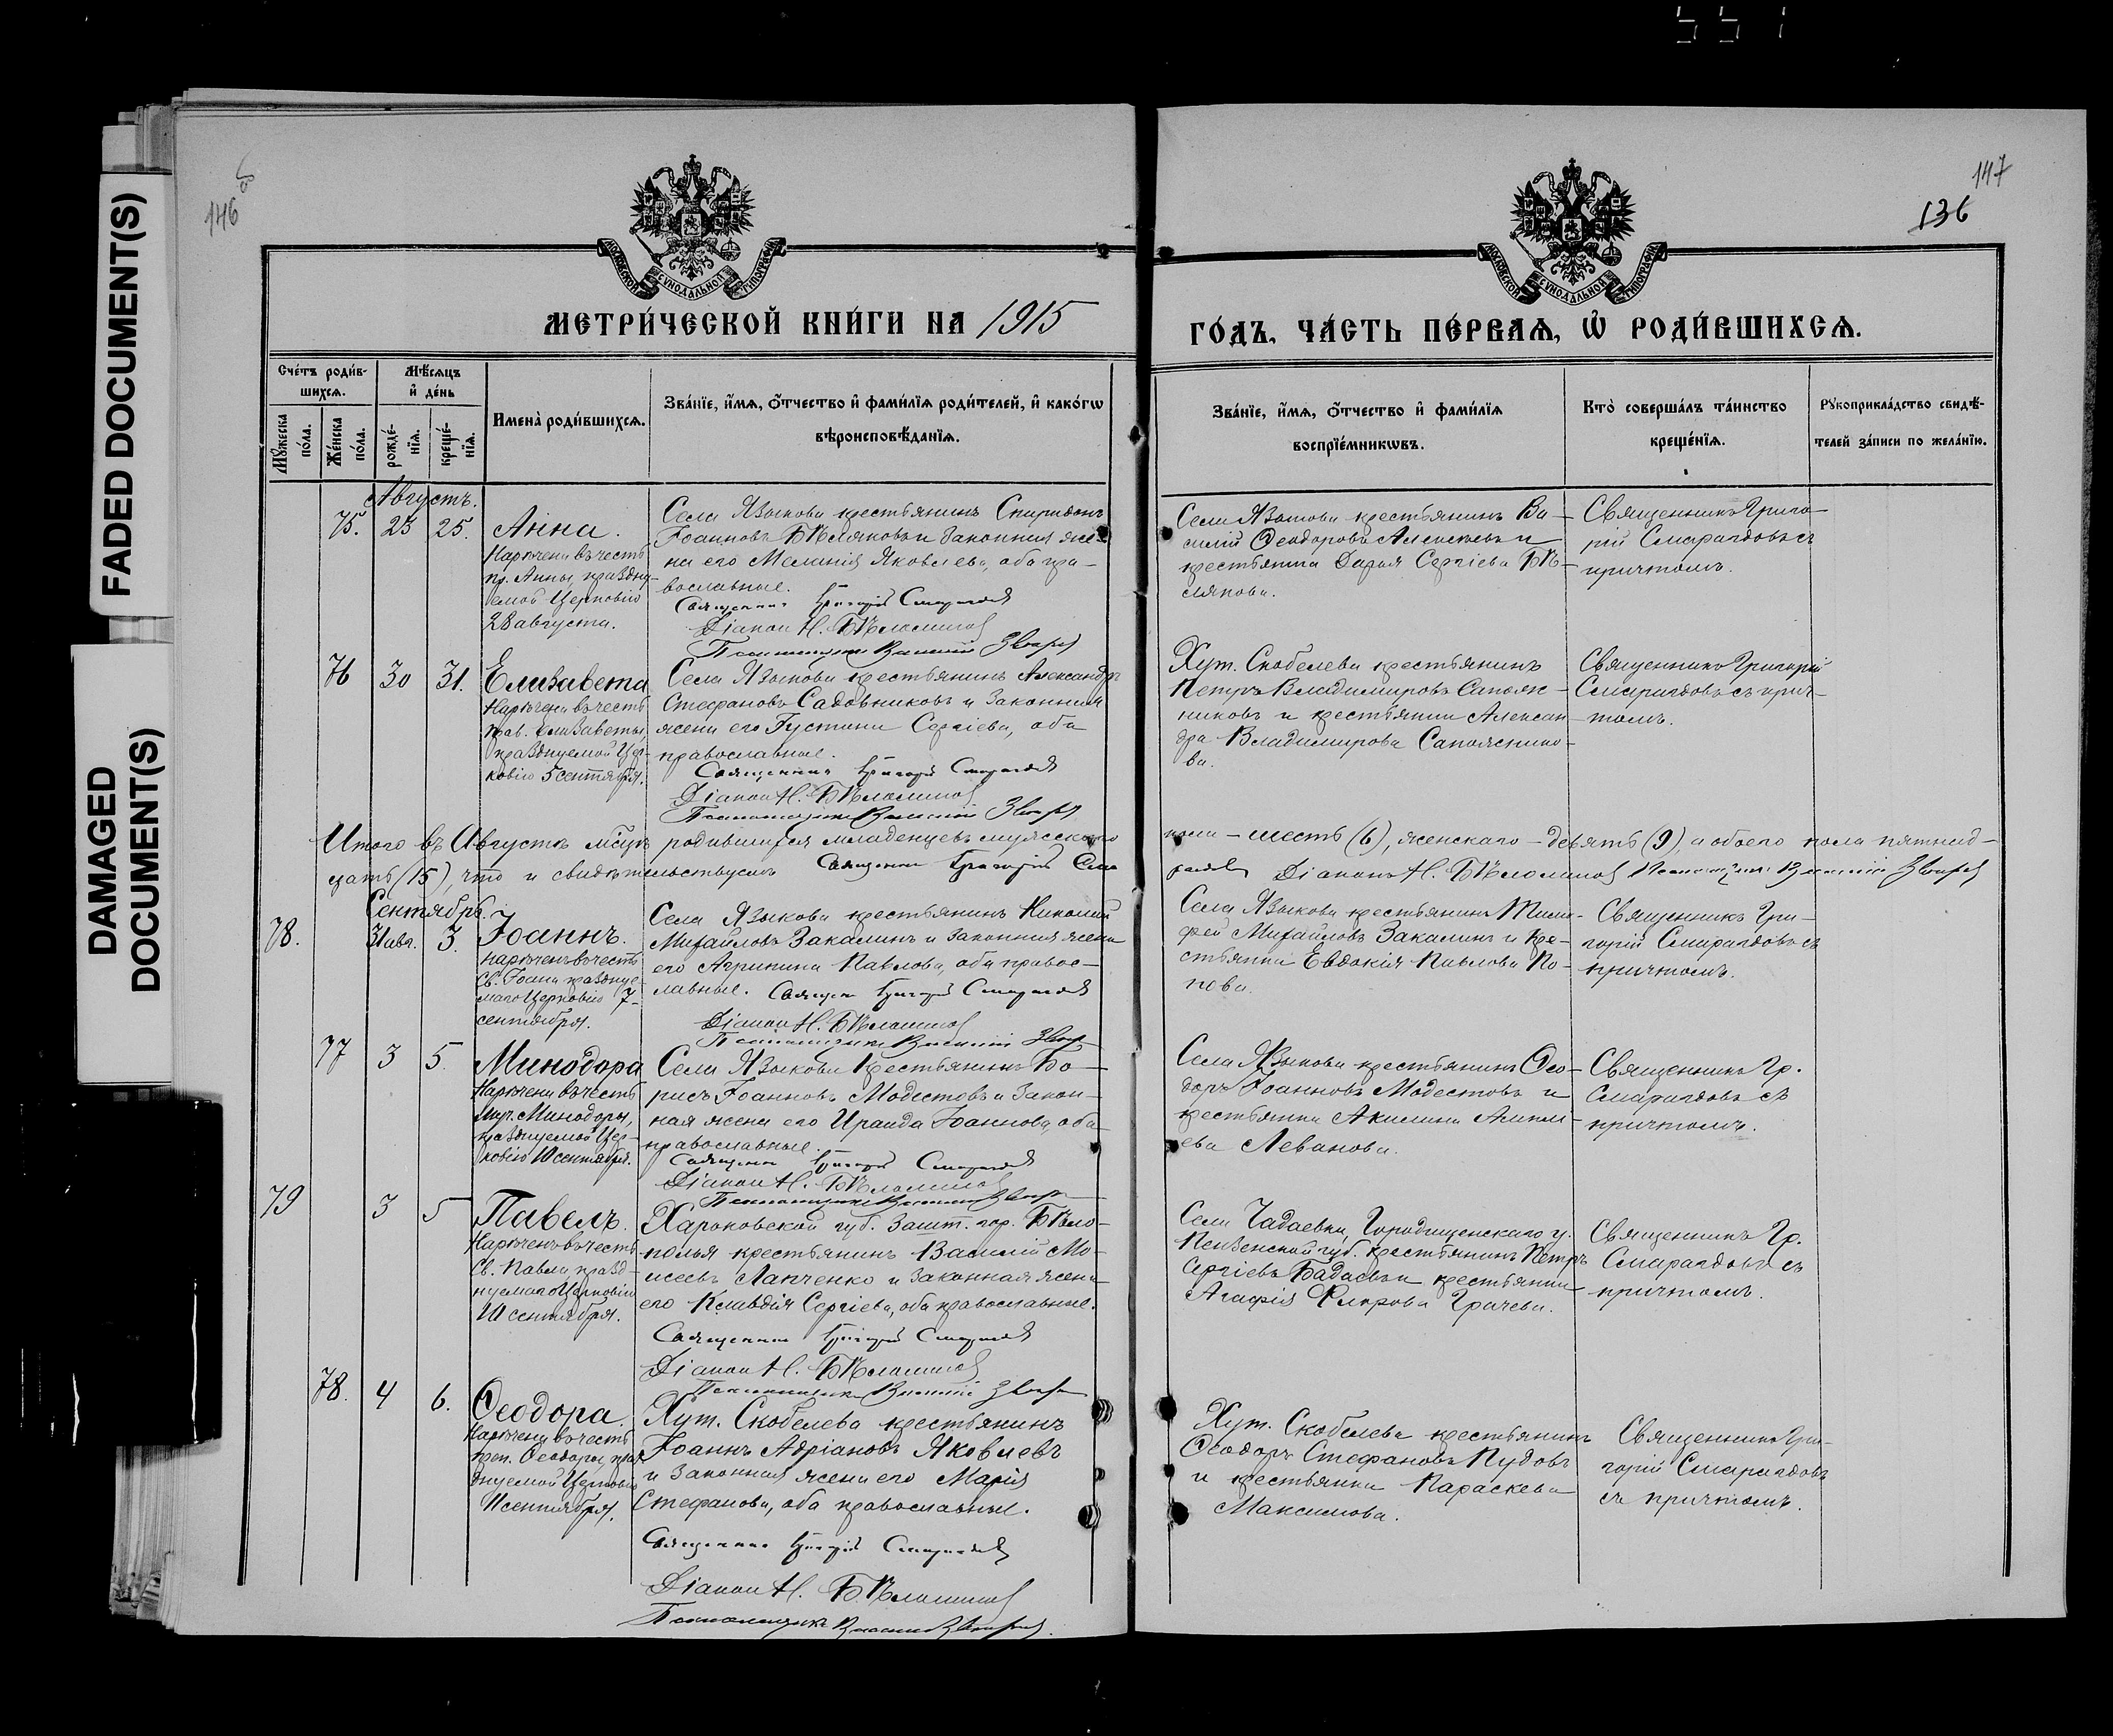 551
FADED DOCUMENT(S)
DAMAGED
DOCUMENT(S)
146
147
136
МОСКОВСКОЙ СѴНОДАЛЬНОЙ ТИПОГРАФІИ
МОСКОВСКОЙ СѴНОДАЛЬНОЙ ТИПОГРАФІИ
МЕТРИ́ЧЕСКОЙ КНИ́ГИ НА 1915
ГО́ДЪ, ЧА́СТЬ ПЕ́РВАѦ, Ѽ РОДИ́ВШИХСѦ.
Сче́тъ роди́в-
шихсѧ.
Мꙋжеска
по́ла.
Же́нска
по́ла.
Мѣ́сѧцъ
и҆ де́нь
рожде́-
нїѧ.
креще́-
нїѧ.
Имена̀ роди́вшихсѧ.
Зва́нїе, и҆́мѧ, ѻ҆́тчество и҆ фами́лїѧ роди́телей, и҆ како́гѡ
вѣроисповѣ́данїѧ.
Зва́нїе, и҆́мѧ, ѻ҆́тчество и҆ фами́лїѧ
воспрїе́мникѡвъ.
Кто̀ соверша́лъ та́инство
креще́нїѧ.
Рꙋкоприкла́дство свидѣ́-
телей за́писи по жела́нїю.
Августъ.
75. 23 25. Анна.
Наречена въ честь
пр. Анны, праздну-
емой Церковію
28 августа.
Села Языкова крестьянинъ Спиридонъ
Іоанновъ Бѣляковъ и законная же-
на его Меланія Яковлева, оба пра-
вославные.
Священникъ Григорій Смарагдовъ
Діаконъ Н. Бѣломыловъ
Псаломщикъ Василій
Села Языкова крестьянинъ Ва-
силій Ѳеодоровъ Алексѣевъ и
крестьянка Дарья Сергіева Бѣ-
лякова.
Священникъ Григо-
рій Смарагдовъ съ
причтомъ.
76 30 31. Елизавета
Наречена въ честь
прав. Елизаветы,
празднуемой Цер-
ковію 5 сентября.
Села Языкова крестьянинъ Александръ
Стефановъ Садовниковъ и законная
жена его Іустина Сергіева, оба
православные.
Священникъ Григорій Смарагдовъ
Діаконъ Н. Бѣломыловъ
Псаломщикъ Василій
Хут. Скобелева крестьянинъ
Петръ Владимировъ Сапож-
никовъ и крестьянка Алексан-
дра Владимирова Сапожнико-
ва.
Священникъ Григорій
Смарагдовъ съ прич-
томъ.
Итого въ Августѣ мѣсяцѣ родившихся младенцевъ мужескаго пола – шесть (6), женскаго – девять (9), а обоего пола пятнад-
цать (15), что и свидѣтельствуемъ Священникъ Григорій Смарагдовъ Діаконъ Н. Бѣломыловъ Псаломщикъ Василій
Сентябрь.
78. 31 авг. 3. Іоаннъ.
Нареченъ въ честь
св. Іоанна праздну-
емаго Церковію 7
сентября.
Села Языкова крестьянинъ Николай
Михайловъ Закалинъ и законная жена
его Агрипина Павлова, оба правос-
лавные. Священникъ Григорій Смарагдовъ
Діаконъ Н. Бѣломыловъ
Псаломщикъ Василій
Села Языкова крестьянинъ Тимо-
фей Михайловъ Закалинъ и кре-
стьянка Евдокія Павлова По-
пова.
Священникъ Гри-
горій Смарагдовъ съ
причтомъ.
77 3 5. Минодора
Наречена въ честь
муч. Минодоры,
празднуемой Цер-
ковію 10 сентября.
Села Языкова крестьянинъ Бо-
рисъ Іоанновъ Модестовъ и закон-
ная жена его Ираида Іоаннова, оба
православные.
Священникъ Григорій Смарагдовъ
Діаконъ Н. Бѣломыловъ
Псаломщикъ Василій
Села Языкова крестьянинъ Ѳео-
доръ Іоанновъ Модестовъ и
крестьянка Акилина
ева Леванова.
Священникъ Гр.
Смарагдовъ съ
причтомъ.
79 3 5 Павелъ.
Нареченъ въ честь
св. Павла празд-
нуемаго Церковію
10 сентября.
Харьковской губ. Зашт. гор. Бѣло-
полья крестьянинъ Василій Мо-
исеевъ Лапченко и законная жена
его Клавдія Сергіева, оба православные.
Священникъ Григорій Смарагдовъ
Діаконъ Н. Бѣломыловъ
Псаломщикъ Василій
Села Чадаевки, Городищенскаго у.
Пензенской губ. крестьянинъ Петръ
Сергіевъ Бадаевъ и крестьянка
Агафія Флорова Грачева.
Священникъ Гр.
Смарагдовъ съ
причтомъ.
78. 4 6. Ѳеодора.
Наречена въ честь
преп. Ѳеодоры праз-
днуемой Церковію
11 сентября.
Хут. Скобелева крестьянинъ
Іоаннъ Адріановъ Яковлевъ
и законная жена его Марія
Стефанова, оба православные.
Священникъ Григорій Смарагдовъ
Діаконъ Н. Бѣломыловъ
Псаломщикъ Василій
Хут. Скобелева крестьянинъ
Ѳеодоръ Стефановъ Пудовъ
и крестьянка Параскева
Максимова.
Священникъ Гри-
горій Смарагдовъ
съ причтомъ.